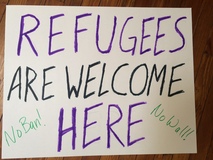 REFUGEES
ARE WELCOME
No Ban!
HERE
No Wall!!